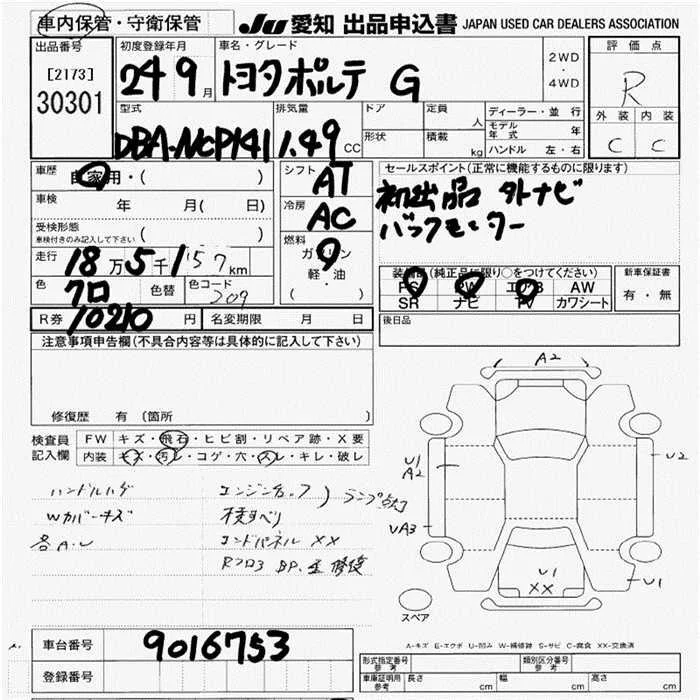 車内保管・守衛保管
JU 愛知 出品申込書 JAPAN USED CAR DEALERS ASSOCIATION
出品番号
[2173]
30301
初度登録年月
24 9 月
車名・グレード
トヨタポルテ G
2WD
・
4WD
評価点
R
外装 内装
C C
型式
DBA-NCP141
排気量
1.49 CC
ドア
形状
定員
人
積載
kg
ディーラー・並行
モデル年式 年
ハンドル 左・右
車歴
自家用・( )
車検
年 月( 日)
受検形態
車検付きのみ記入して下さい ( )
走行
18万5千157km
色
クロ
色替
色コード
209
シフト
AT
冷房
AC
燃料
ガソリン
軽・油
( )
セールスポイント(正常に機能するものに限ります)
初出品 外ナビ
バックモニター
装備品(純正品に限り○をつけてください)
PS PW エアB AW
SR ナビ TV カワシート
新車保証書
有・無
R券
10210 円
名変期限 月 日
後日品
注意事項申告欄(不具合内容等は具体的に記入して下さい)
修復歴 有 (箇所
検査員
記入欄
FW キズ・飛石・ヒビ割・リペア跡・X要
内装 キズ・汚レ・コゲ・穴・スレ・キレ・破レ
ハンドルハゲ
Wカバーキズ
各A.U
エンジンチェック ) ランプ点灯
コンドパネル XX
A2
U1
A2
UA3
U2
U1
XX
U1
スペア
A-キズ E-エクボ U-凹み W-補修跡 S-サビ C-腐食 XX-交換済
車台番号
9016753
登録番号
形式指定番号
参考
類別区分番号
参考
車庫証明用
参考
長さ cm
幅 cm
高さ cm